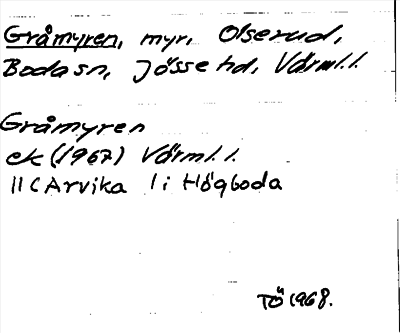 Gråmyren, myr, Olserud,
Boda sn, Jösse hd, Värml.l.
Gråmyren
ek (1967) Värml.l.
11C Arvika 1 i Högboda
TÖ 1968.